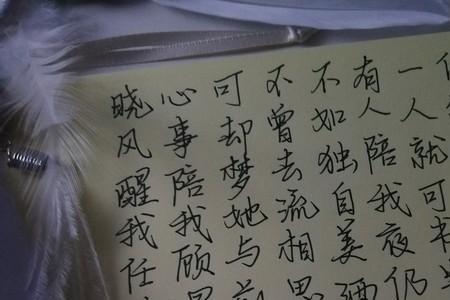 一人就可书
有人陪我夜仍
不如独自美酒
不曾去流相思
可却梦她与
心事陪我顾
晓风醒我任